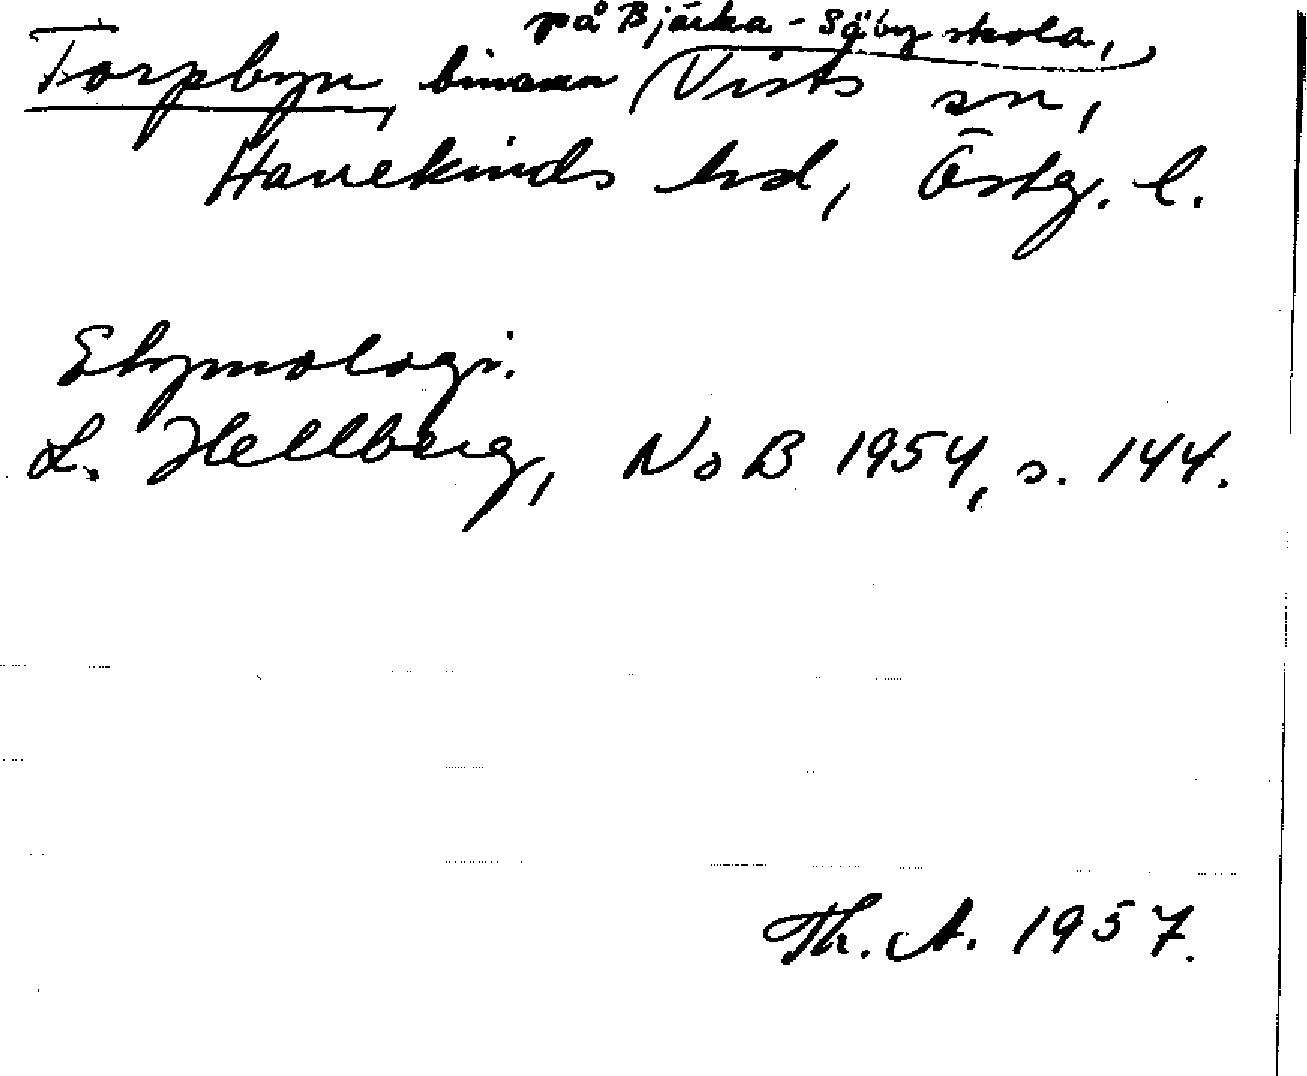 på Bjärka-Säby skola,
Torpbyn, binamn Vists sn,
Hanekinds hd, Östg. l.
Etymologi.
L. Hellberg, NoB 1954, s. 144.
Th. A. 1957.